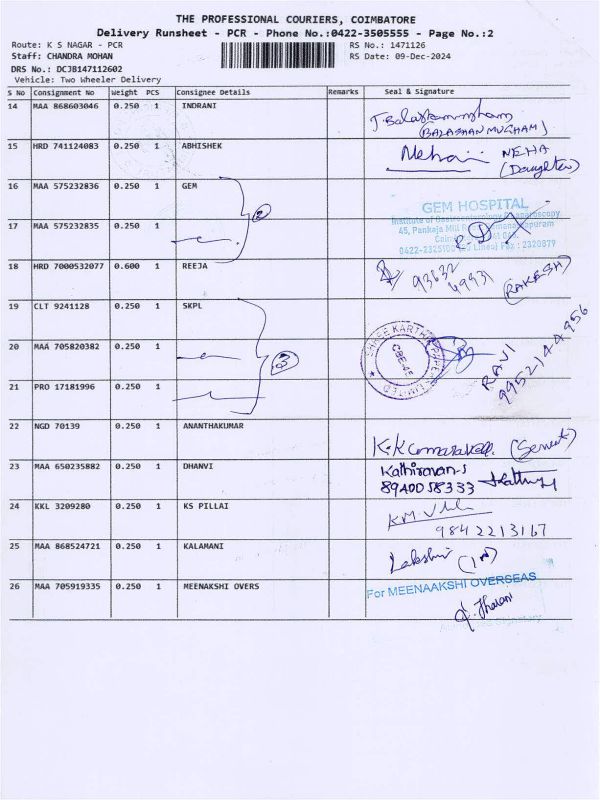 THE PROFESSIONAL COURIERS, COIMBATORE
Delivery Runsheet - PCR - Phone No.:0422-3505555 - Page No.:2
Route: K S NAGAR - PCR
RS No.: 1471126
Staff: CHANDRA MOHAN
RS Date: 09-Dec-2024
DRS No.: DCJB147112602
Vehicle: Two Wheeler Delivery
S No Consignment No Weight PCS Consignee Details Remarks Seal & Signature
14 MAA 868603046 0.250 1 INDRANI
(BALASHANMUGHAM)
15 HRD 741124083 0.250 1 ABHISHEK
NEHA
(Daughter)
16 MAA 575232836 0.250 1 GEM
2
GEM HOSPITAL
Institute of Gastroenterology
45, Pankaja Mill
0422-2325100 Fax : 2320879
17 MAA 575232835 0.250 1
18 HRD 7000532077 0.600 1 REEJA
93632
49931
(RAKESH)
19 CLT 9241128 0.250 1 SKPL
20 MAA 705820382 0.250 1
3
SHREE KARTHIK PAPERS LIMITED
CBE-45
RAVI
9952144956
21 PRO 17181996 0.250 1
22 NGD 70139 0.250 1 ANANTHAKUMAR
(Servent)
23 MAA 650235882 0.250 1 DHANVI
Kathiravan.s
8940058333
24 KKL 3209280 0.250 1 KS PILLAI
9842213167
25 MAA 868524721 0.250 1 KALAMANI
Lakshmi
26 MAA 705919335 0.250 1 MEENAKSHI OVERS
For MEENAAKSHI OVERSEAS